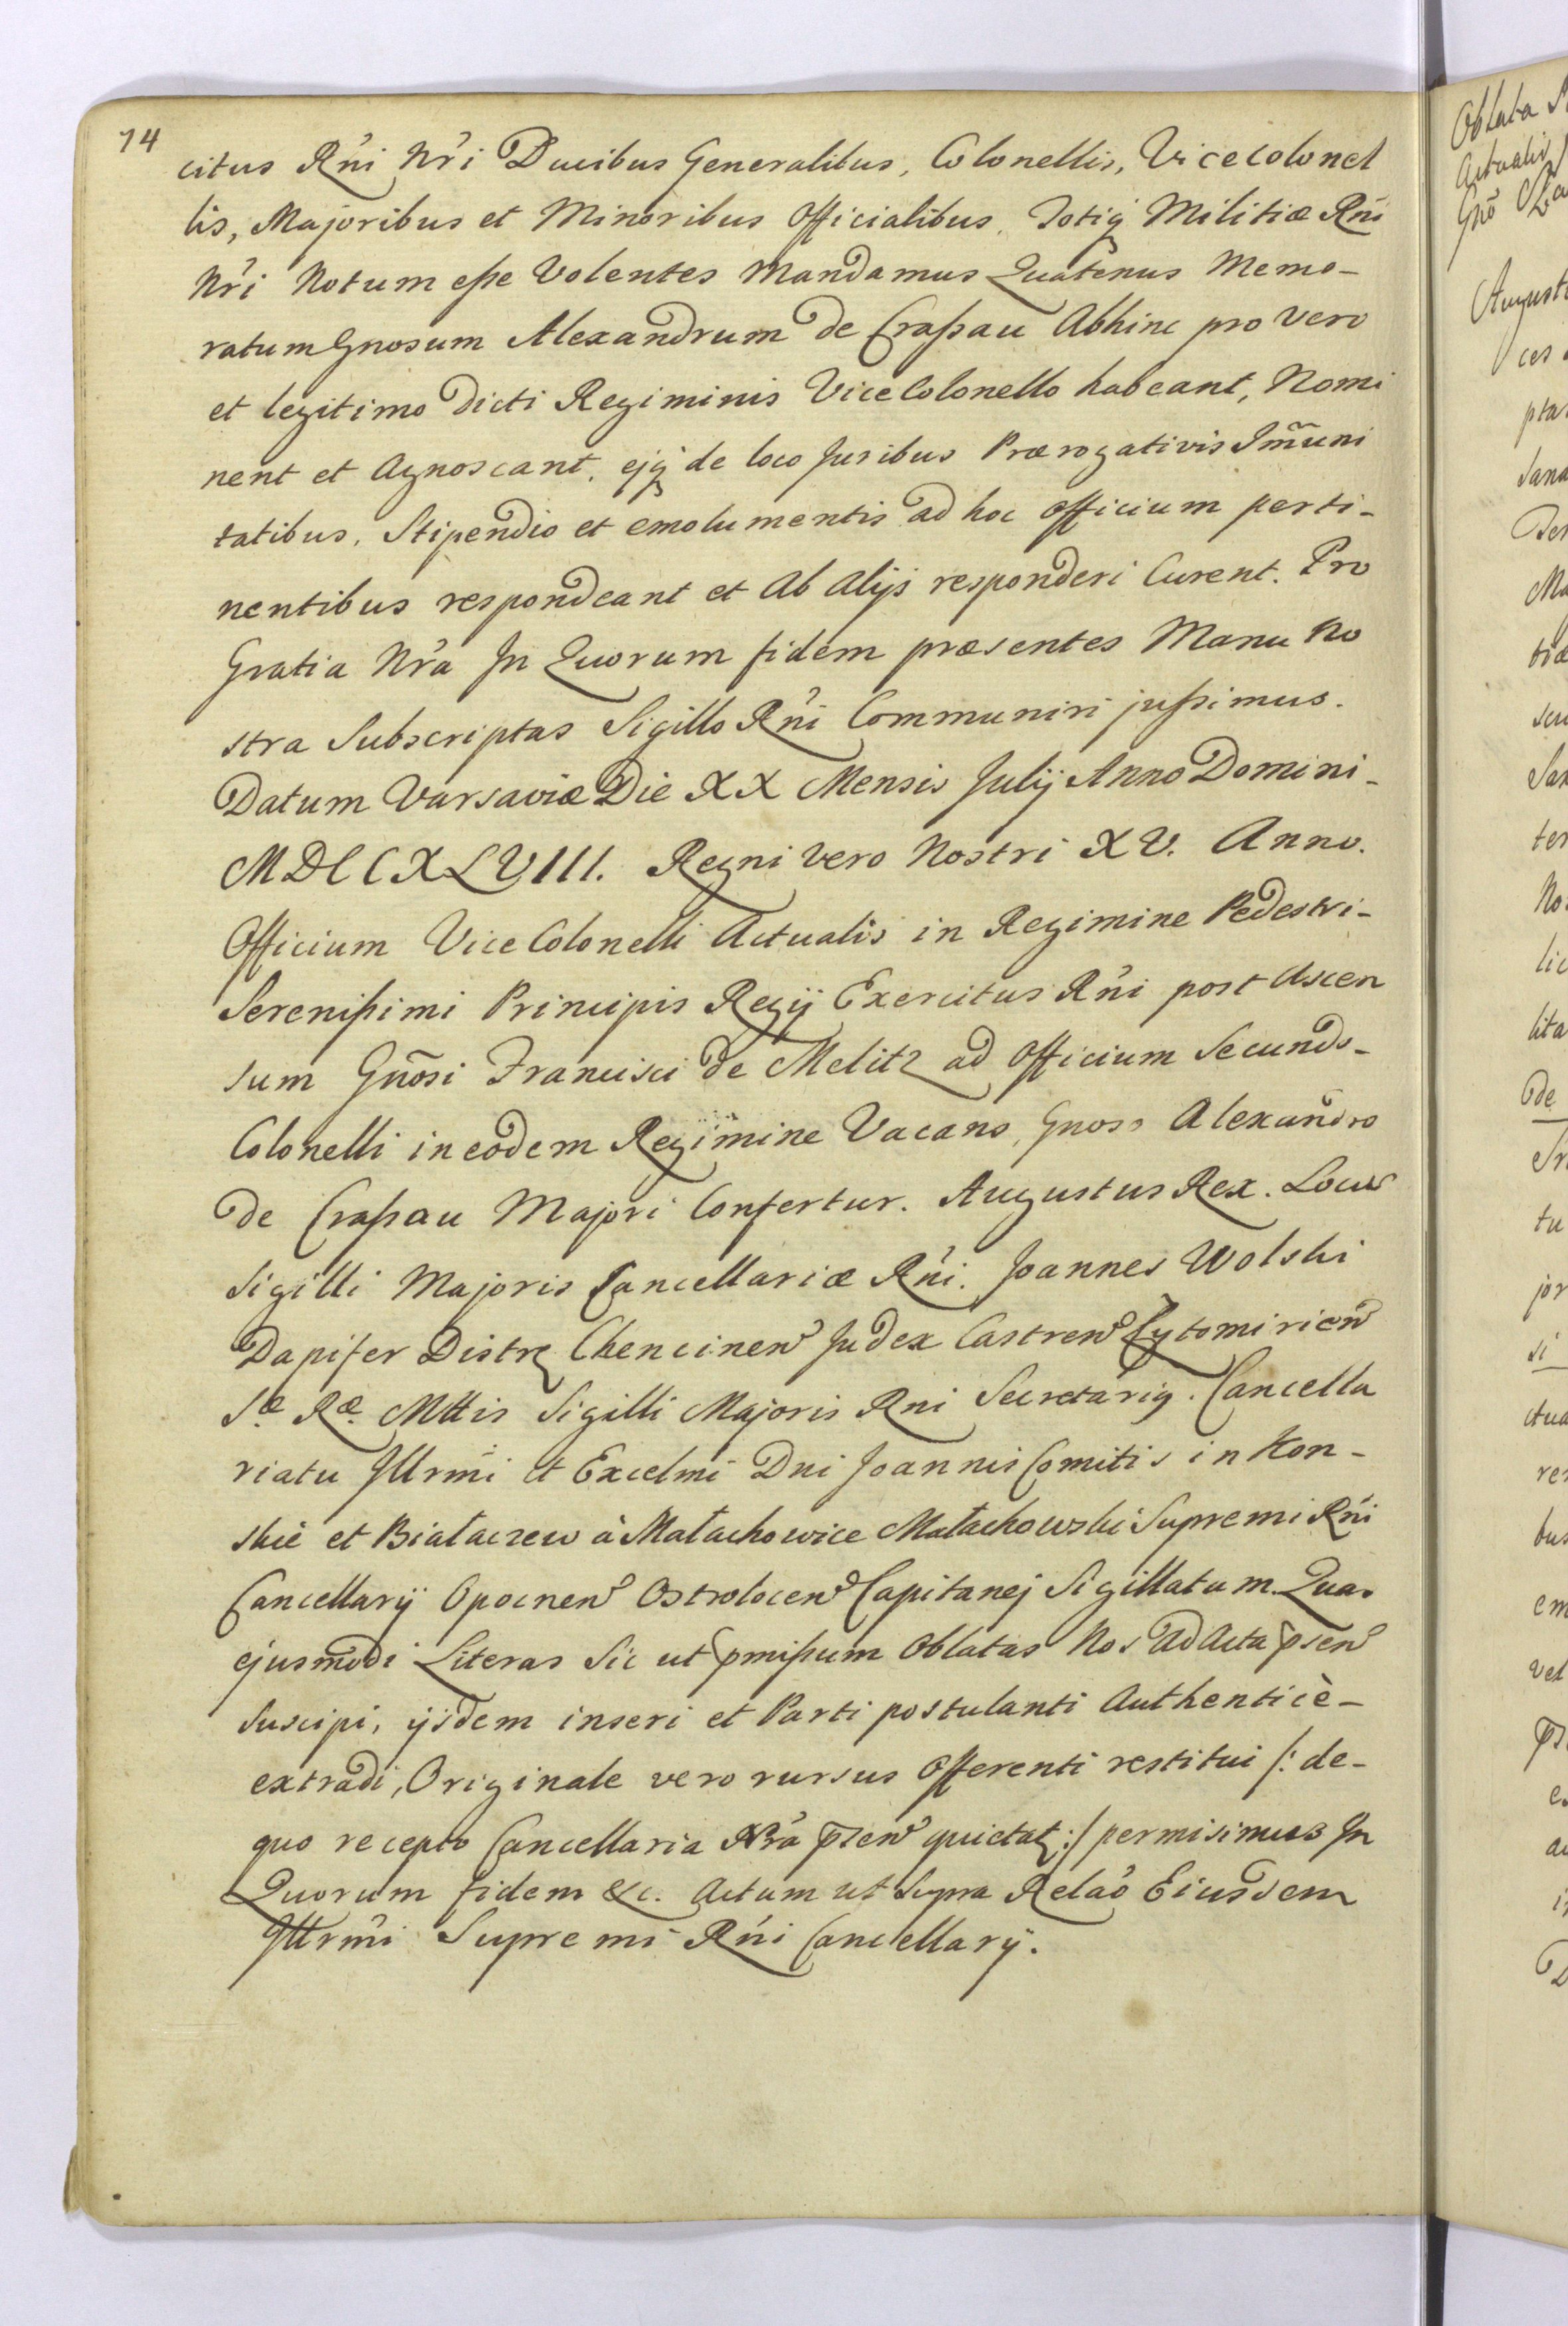 74
citus Rñi Nr̃i Ducibus Generalibus, Colonellis, Vicecolonel
lis, Majoribus et Minoribus Officialibus, Totiq̨ Militiæ Rñi
Nr̃i Notum eße Volentes Mandamus Quatenus Memo-
ratum Gnosum Alexandrum de Craßau Abhinc pro vero
et legitimo dicti Regiminis Vice Colonello habeant, Nomi
nent et Agnoscant, ejq̨ de loco Juribus Prærogativis Im̃uni
tatibus, Stipendio et emolumentis ad hoc officium perti-
nentibus respondeant et Ab Alijs responderi Curent. Pro
Gratia Nr̃a In Quorum fidem præsentes Manu No
stra Subscriptas Sigillo Rñi Communiri jußimus.
Datum Varsaviæ Die XX Mensis Julij Anno Domini-
MDCCXLVIII. Regni vero Nostri XV. Anno.
Officium Vice Colonelli Actualis in Regimine Pedestri-
Serenißimi Principis Regij Exercitus Rñi post Ascen
sum Gños̃i Francisci de Melitz ad Officium Secundo-
Colonelli in eodem Regimine Vacans, Gnoso Alexandro
de Craßau Majori Confertur. Augustus Rex. Locus
Sigilli Majoris Cancellariæ Rñi. Joannes Wolski
Dapifer Distrꝫ Chencinen̄ Judex Castren̄ Zytomirien̄
Sæ Ræ Mttis Sigilli Majoris Rni Secretariq. Cancella
riatu Illrmi et Excelmi Dni Joannis Comitis in Kon-
skie et Białaczew à Małachowice Małachowski Supremi Rñi
Cancellarij Opocnen̄ Ostrolocen̄ Capitanej Sigillatum. Quas
ejusmodi Literas Sic ut p̄mißum Oblatas Nos Ad Acta p̄sen̄
Suscipi, ijsdem inseri et Parti postulanti Authenticè-
extradi, Originale vero rursus Offerenti restitui /: de-
quo recepto Cancellaria Nr̃a p̄sen̄ quietatꝫ :/ permisimus In
Quorum fidem &c. Actum ut Supra Relaõ Eiusdem
Illrmi Supremi Rñi Cancellarij.
Oblata
Actualis
Gnõ
August
ces
pta
Sana
Der
Ma
tiæ
scu
San
ter
No
lic
lita
de
tu
jor
si
ctua
ren
bus
em
vel